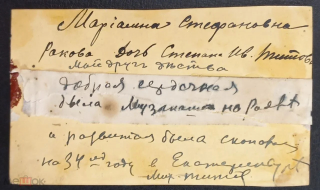 Маріамна Стефановна
Ракова Дочь Степана Ив. Титова
Мой другъ детства
добрая сердечная
была Музыкантша на Рояле
а развитая была
на 34 ом году в Екатеринбург
Мих Титов